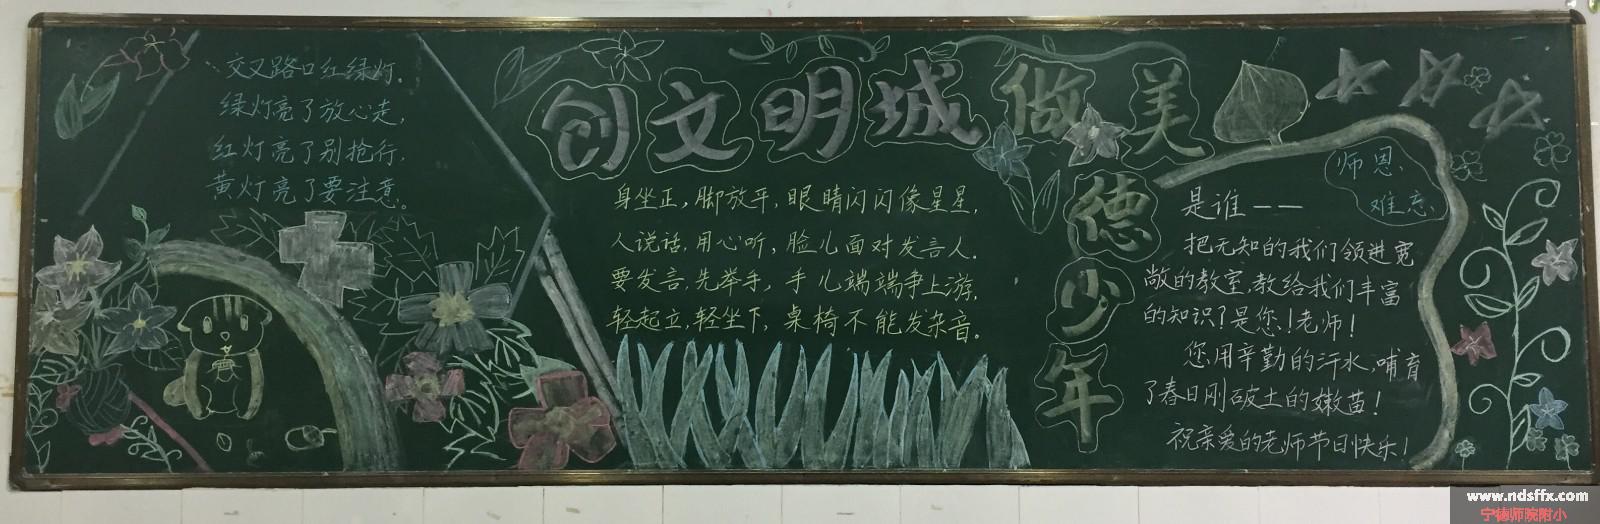 创文明城 做美德少年
交叉路口红绿灯。
绿灯亮了放心走,
红灯亮了别抢行,
黄灯亮了要注意。
身坐正,脚放平,眼睛闪闪像星星,
人说话,用心听,脸儿面对发言人.
要发言,先举手,手儿端端争上游,
轻起立,轻坐下,桌椅不能发杂音。
师恩
难忘
是谁——
把无知的我们领进宽
敞的教室,教给我们丰富
的知识?是您!老师!
您用辛勤的汗水,哺育
了春日刚破土的嫩苗!
祝亲爱的老师节日快乐!
www.ndsffx.com
宁德师院附小